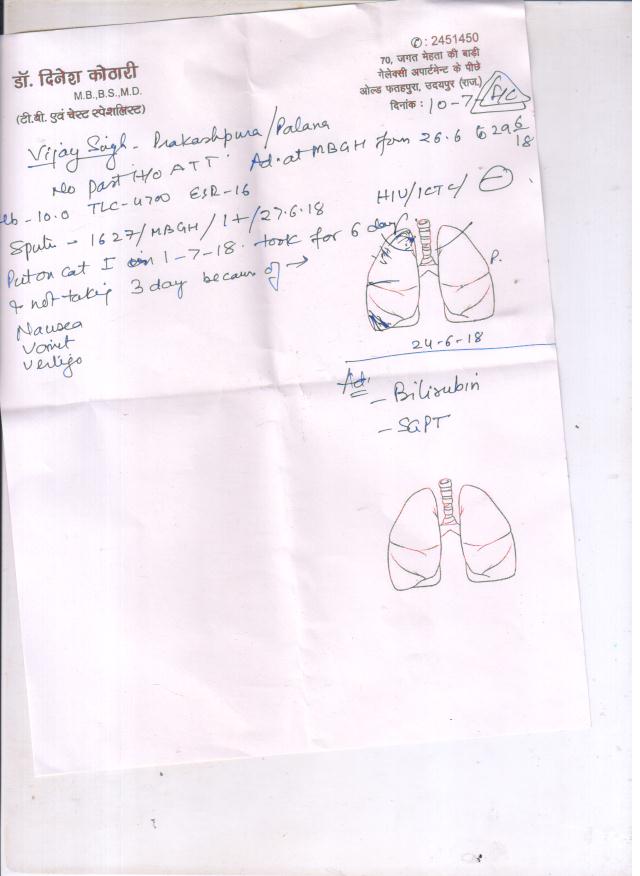 डॉ. दिनेश कोठारी
M.B.,B.S.,M.D.
(टी.बी. एवं चेस्ट स्पेशलिस्ट)
✆ : 2451450
70, जगत मेहता की बाड़ी
गेलेक्सी अपार्टमेन्ट के पीछे
ओल्ड फतहपुरा, उदयपुर (राज.)
दिनांक : 10-7-
Vijay Singh - Prakashpura/Palana
No past H/o ATT. Ad. at MBGH from 26.6 to 29 6/18
Hb - 10.0 TLC-4700 ESR-16
HIV/ICTC/
Sputi - 1627/MBGH/1+/27.6.18
Put on cat I on 1-7-18. took for 6 day
& not taking 3 day becaus of →
Nausea
Vomit
Vertigo
P.
24-6-18
Ad.
- Bilirubin
- SGPT